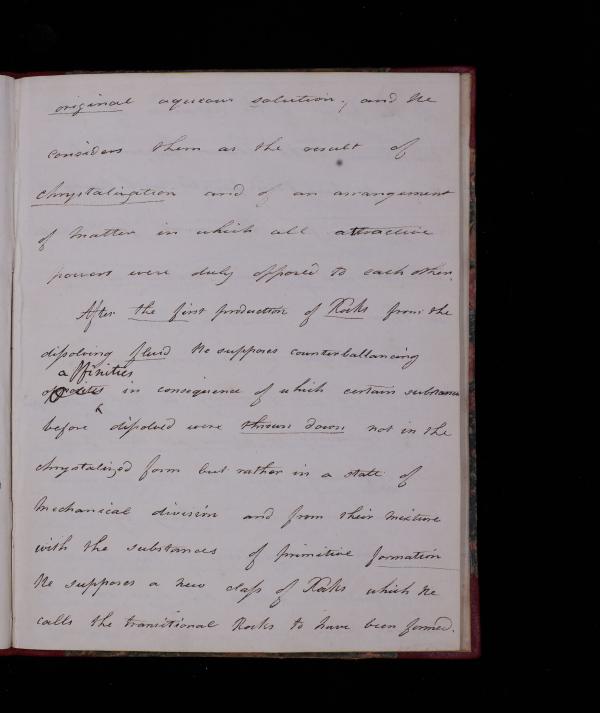 original aqueous solution; and He
considers them as the result of
chrystalization and of an arrangement
of matter in which all attractive
powers were duly opposed to each other.
After the first production of Rocks from the
dissolving fluid He supposes counterballancing
affinities
in consequence of which certain substances
before dissolved were thrown down not in the
chrystalized form but rather in a state of
mechanical division and from their mixture
with the substances of primitive formation
He supposes a new class of Rocks which He
calls the transitional Rocks to have been formed.